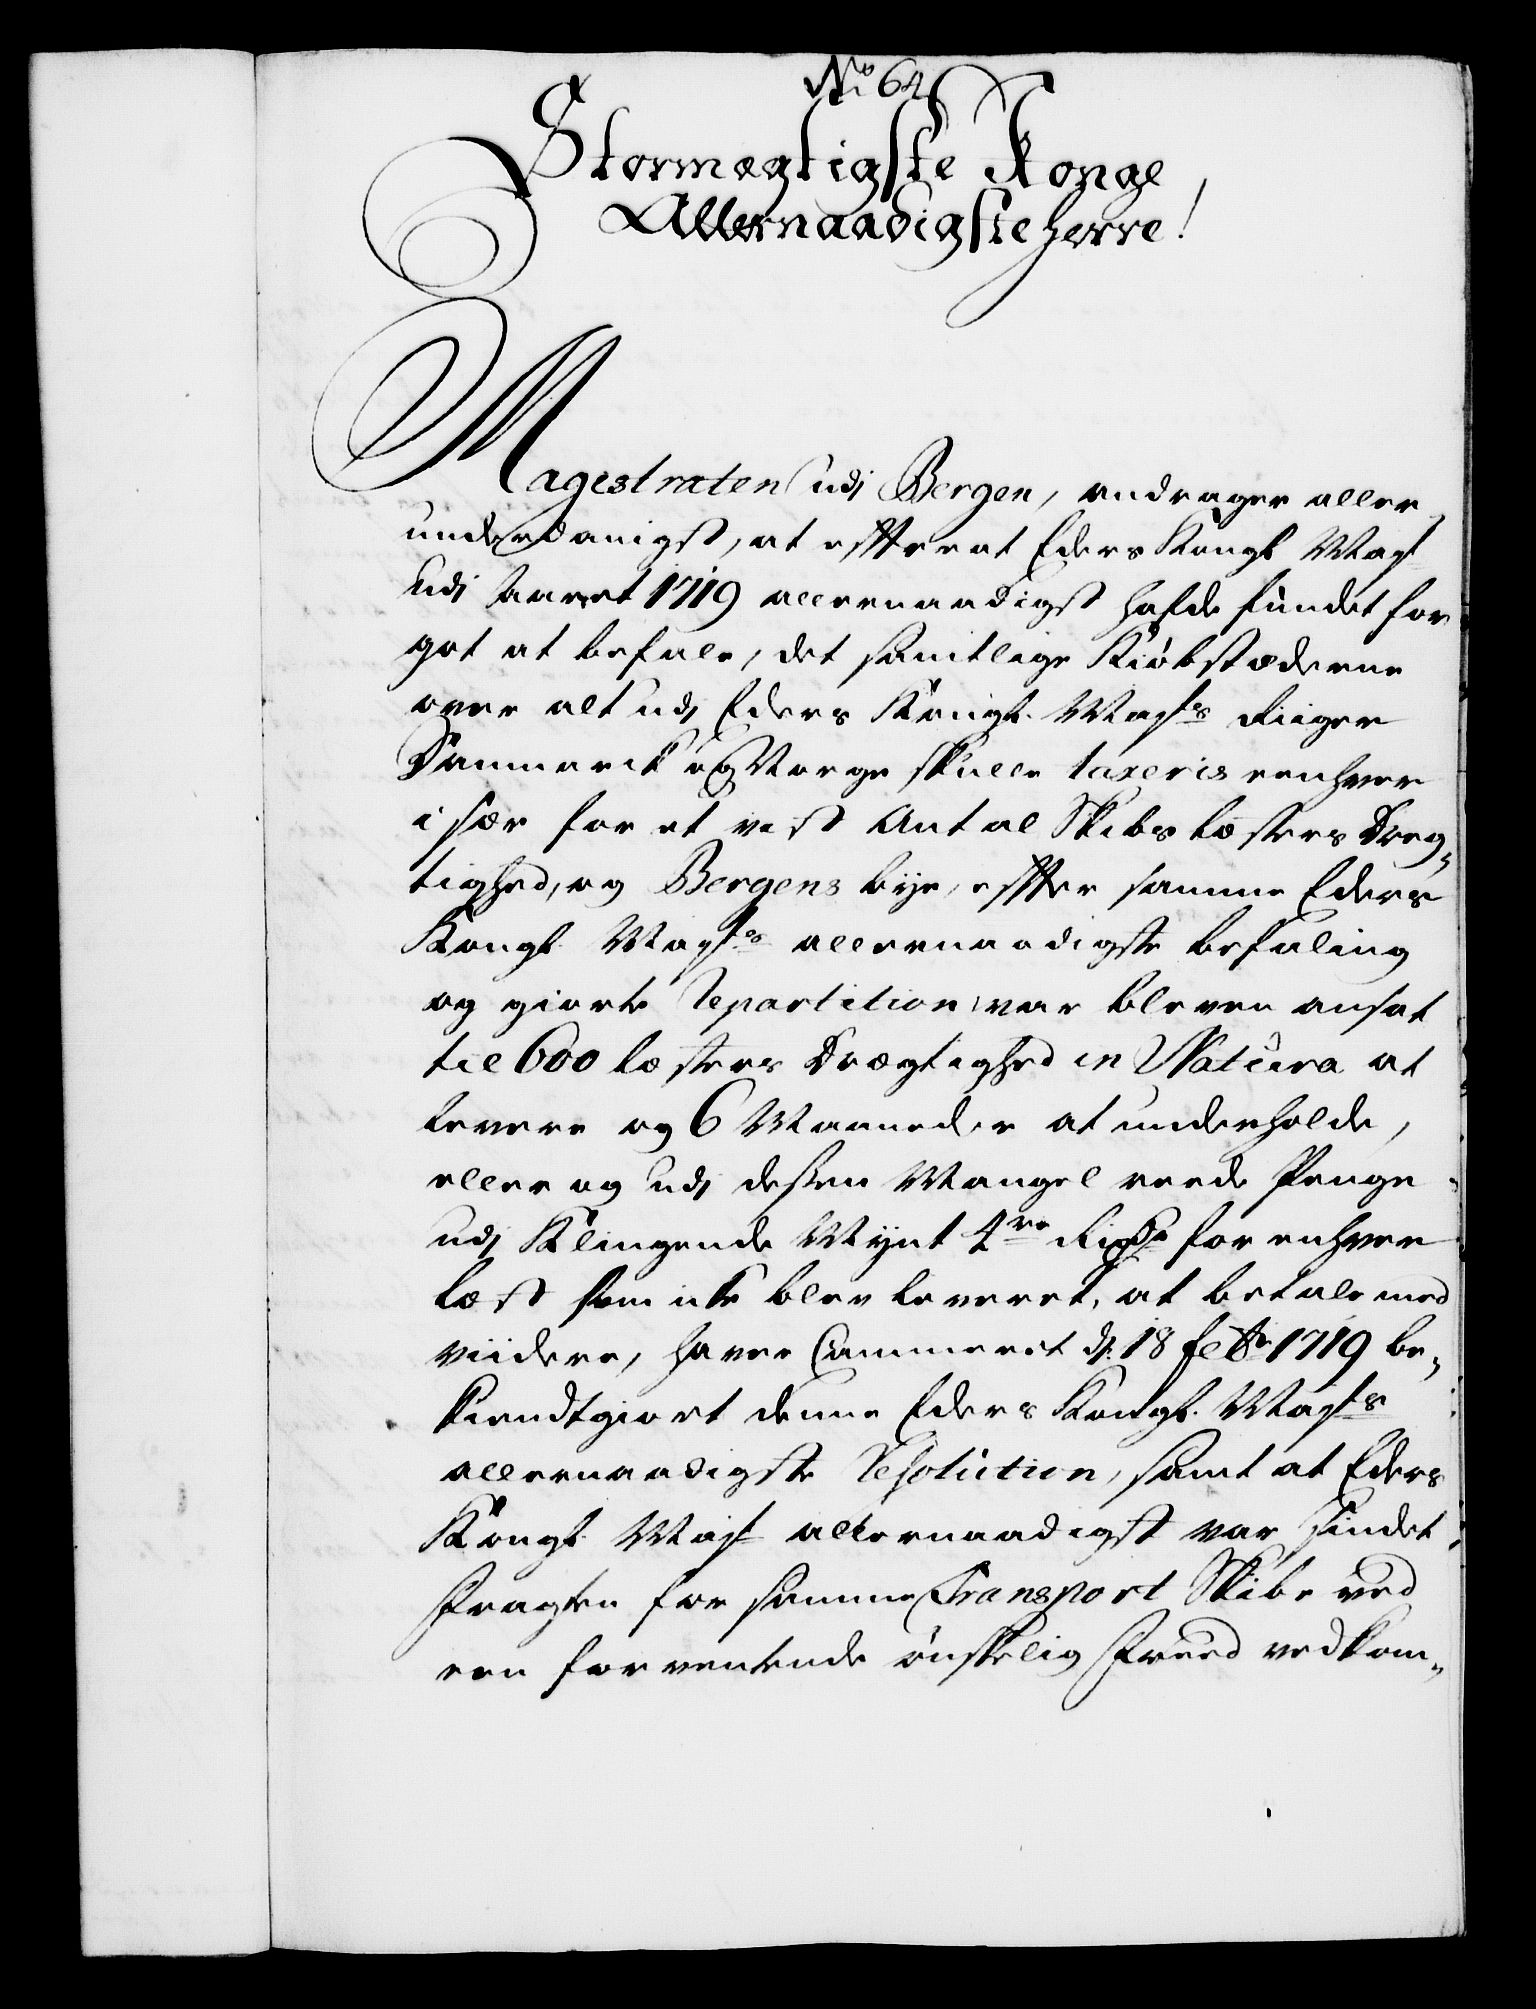 No 64
Stormægtigste Konge
Allernaadigste Herre!
Magestraten udj Bergen, andrager aller
underdanigst, at effterat Eders Kongl Mayt
udj Aaret 1719 allernaadigst hafde fundet for
got at befale, det samtlige Kiøbstæderne
over alt udj Eders Kongl. Mayts Riiger
Danmarck og Norge skulle taxeris eenhver
i sær for et vist Antal Skibs læsters Dreg„
tighed, og Bergens bye, effter samme Eders
Kongl Mayts allernaadigste befaling
og giorte Repartition, var bleven ansat
til 600 læsters Drægtighed in Natura at
levere og 6 Maaneder at underholde,
eller og udj dessen Mangel reede Penge
udj Klingende Mynt 4re Rixdr for enhver
læst som icke blev leveret, at betale med
viidere, haver Cammeret d. 18 Febr 1719 be„
kiendtgiort denne Eders Kongl. Mayts
allernaadigste Resolution, samt at Eders
Kongl. Mayt allernaadigst var sindet
Fragten for samme Transport Skibe ved
een forventende ønskelig Freed vedkom„